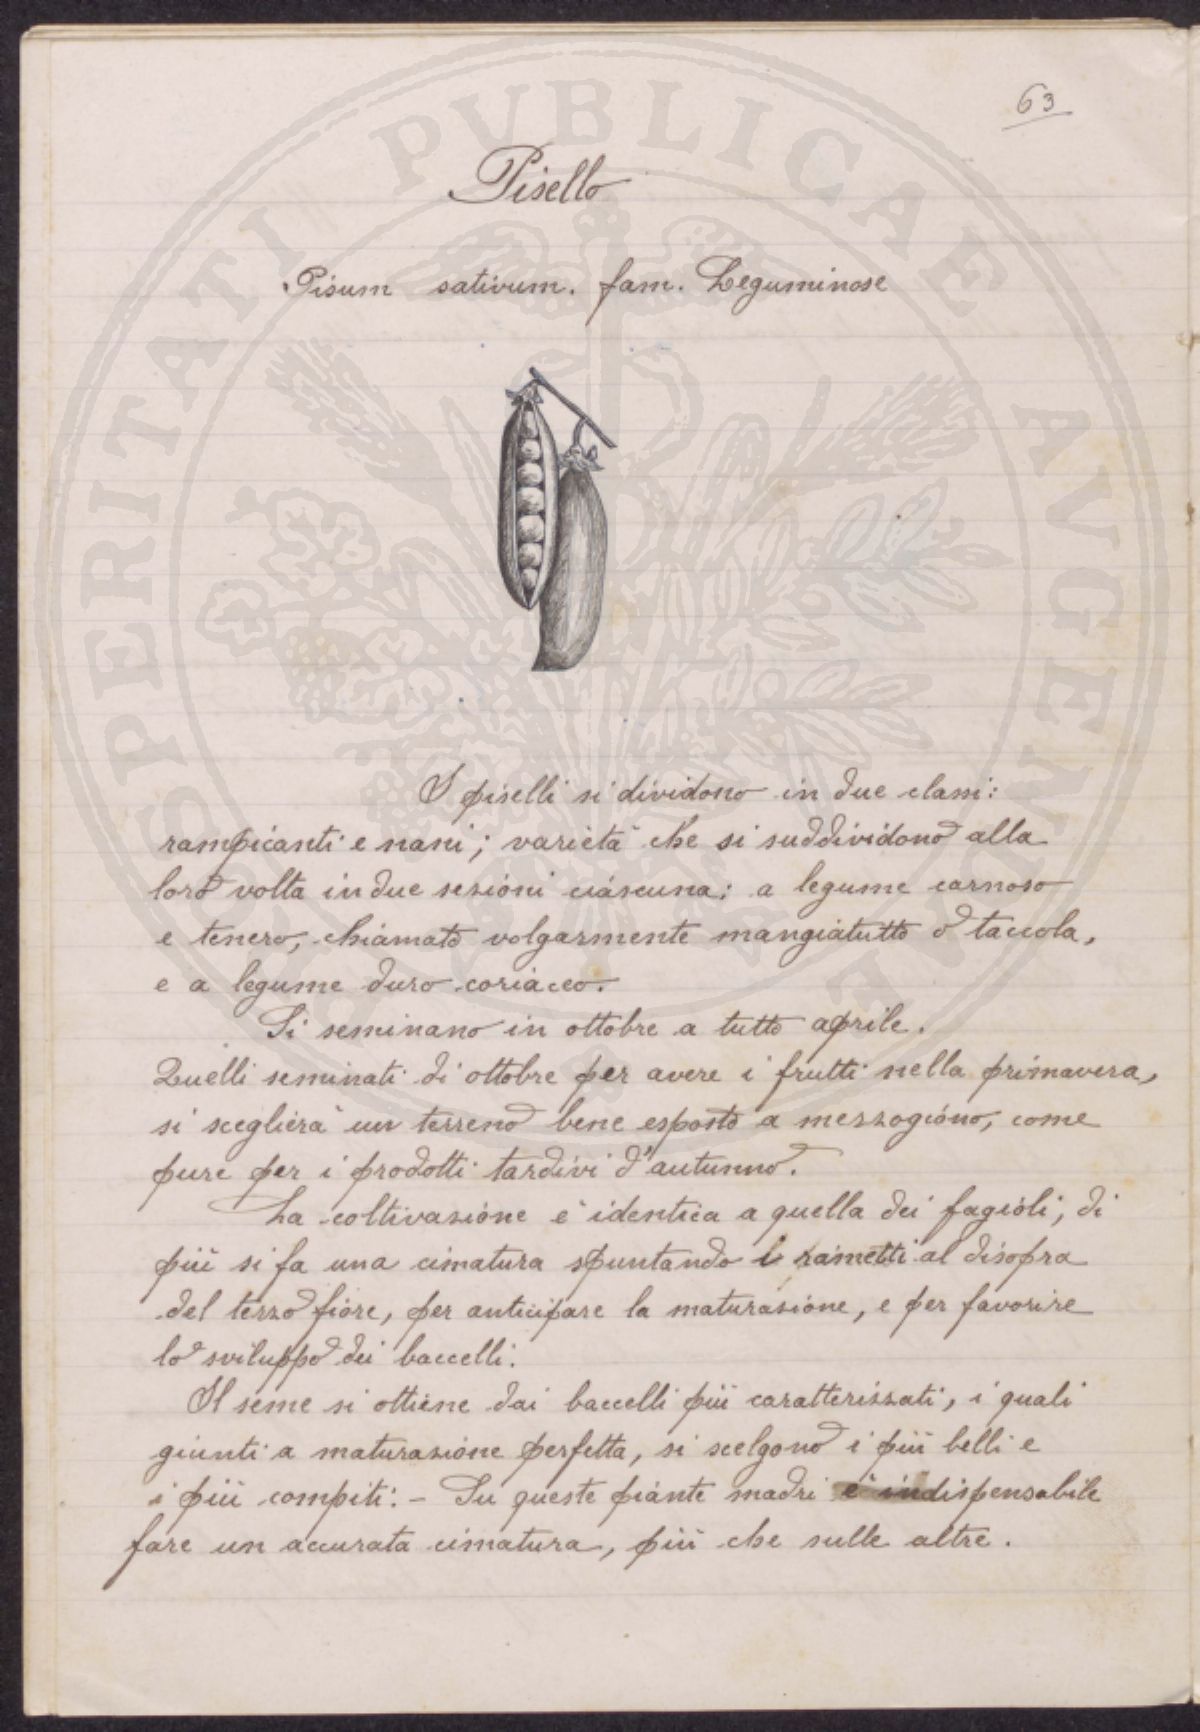 63
Pisello
Pisum sativum. fam. Leguminose
I piselli si dividono in due classi:
rampicanti e nani; varietà che si suddividono alla
loro volta in due sezioni ciascuna: a legume carnoso
e tenero, chiamato volgarmente mangiatutto o taccola,
e a legume duro coriaceo.
Si seminano in ottobre a tutto aprile.
Quelli seminati di ottobre per avere i frutti nella primavera,
si sceglierà un terreno bene esposto a mezzogiono, come
pure per i prodotti tardivi d'autunno.
La coltivazione è identica a quella dei fagioli, di
più si fa una cimatura spuntando i rametti al disopra
del terzo fiore, per anticipare la maturazione, e per favorire
lo sviluppo dei baccelli.
Il seme si ottiene dai baccelli più caratterizzati, i quali
giunti a maturazione perfetta, si scelgono i più belli e
i più compiti: - Su queste piante madri è indispensabile
fare un accurata cimatura, più che sulle altre.
PROSPERITATI PVBLICAE AVGENDAE